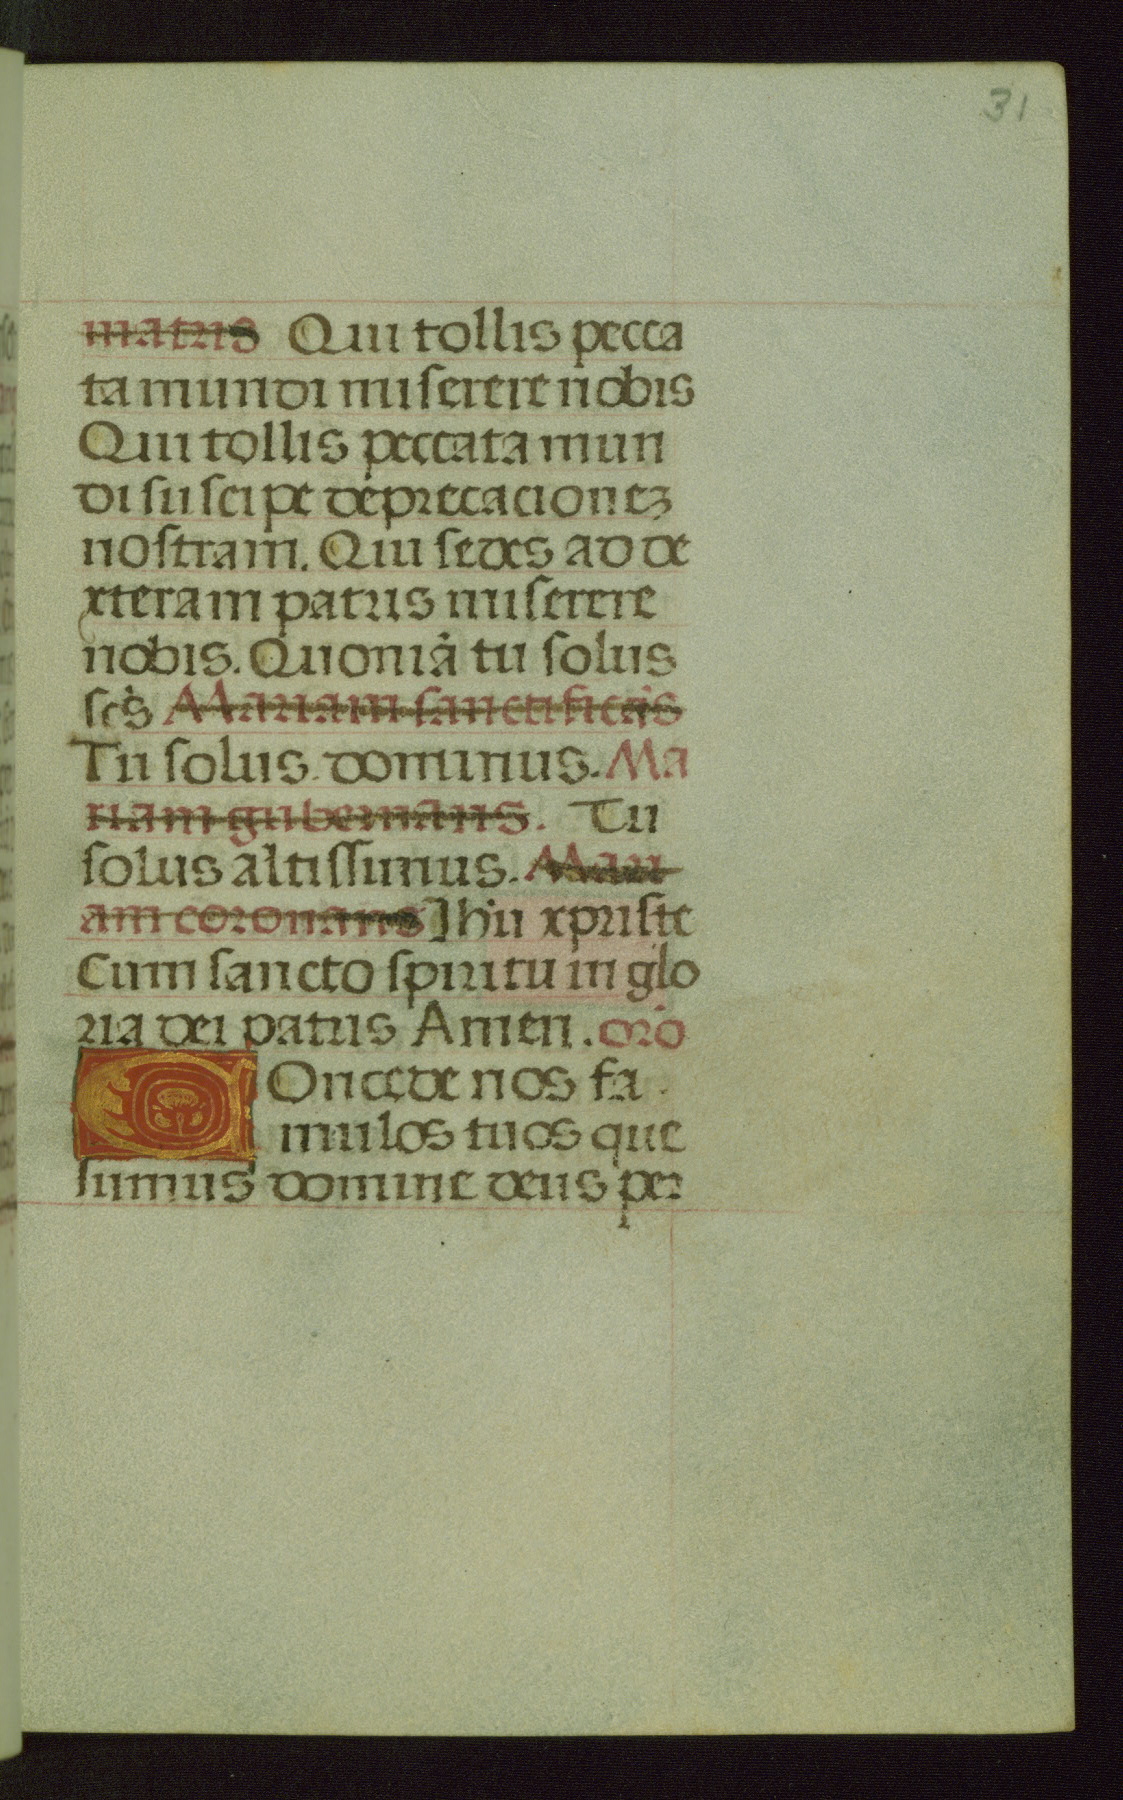 31
matris Qui tollis pecca
ta mundi miserere nobis
Qui tollis peccata mun
di suscipe deprecacionez
nostram. Qui sedes ad de
xteram patris miserere
nobis. Quoniā tu solus
scs̄ Mariam sanctificās
Tu solus dominus. Ma
riam gubernans. Tu
solus altissimus. Mari
am coronans Ihū xpriste
Cum sancto spiritu in glo
ria dei patris Amen. orō
COncede nos fa
mulos tuos que
sumus domine deus per